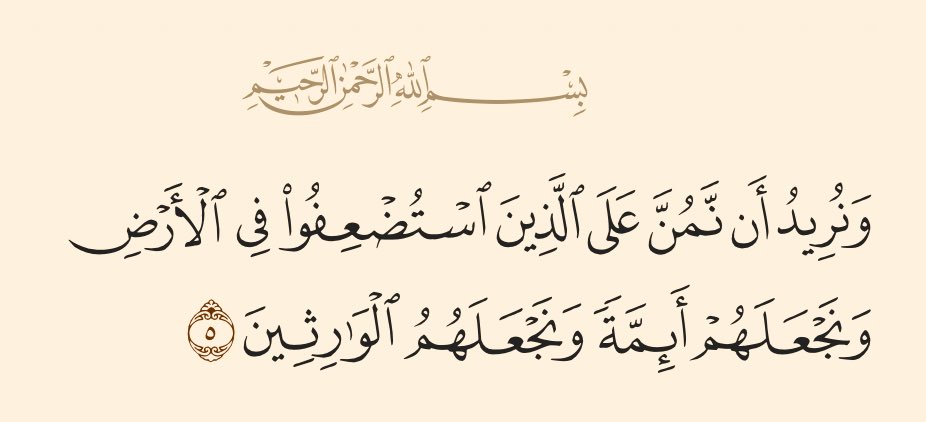 بِسْمِ ٱللَّهِ ٱلرَّحْمَٰنِ ٱلرَّحِيمِ
وَنُرِيدُ أَن نَّمُنَّ عَلَى ٱلَّذِينَ ٱسْتُضْعِفُوا۟ فِى ٱلْأَرْضِ
وَنَجْعَلَهُمْ أَئِمَّةً وَنَجْعَلَهُمُ ٱلْوَٰرِثِينَ ٥